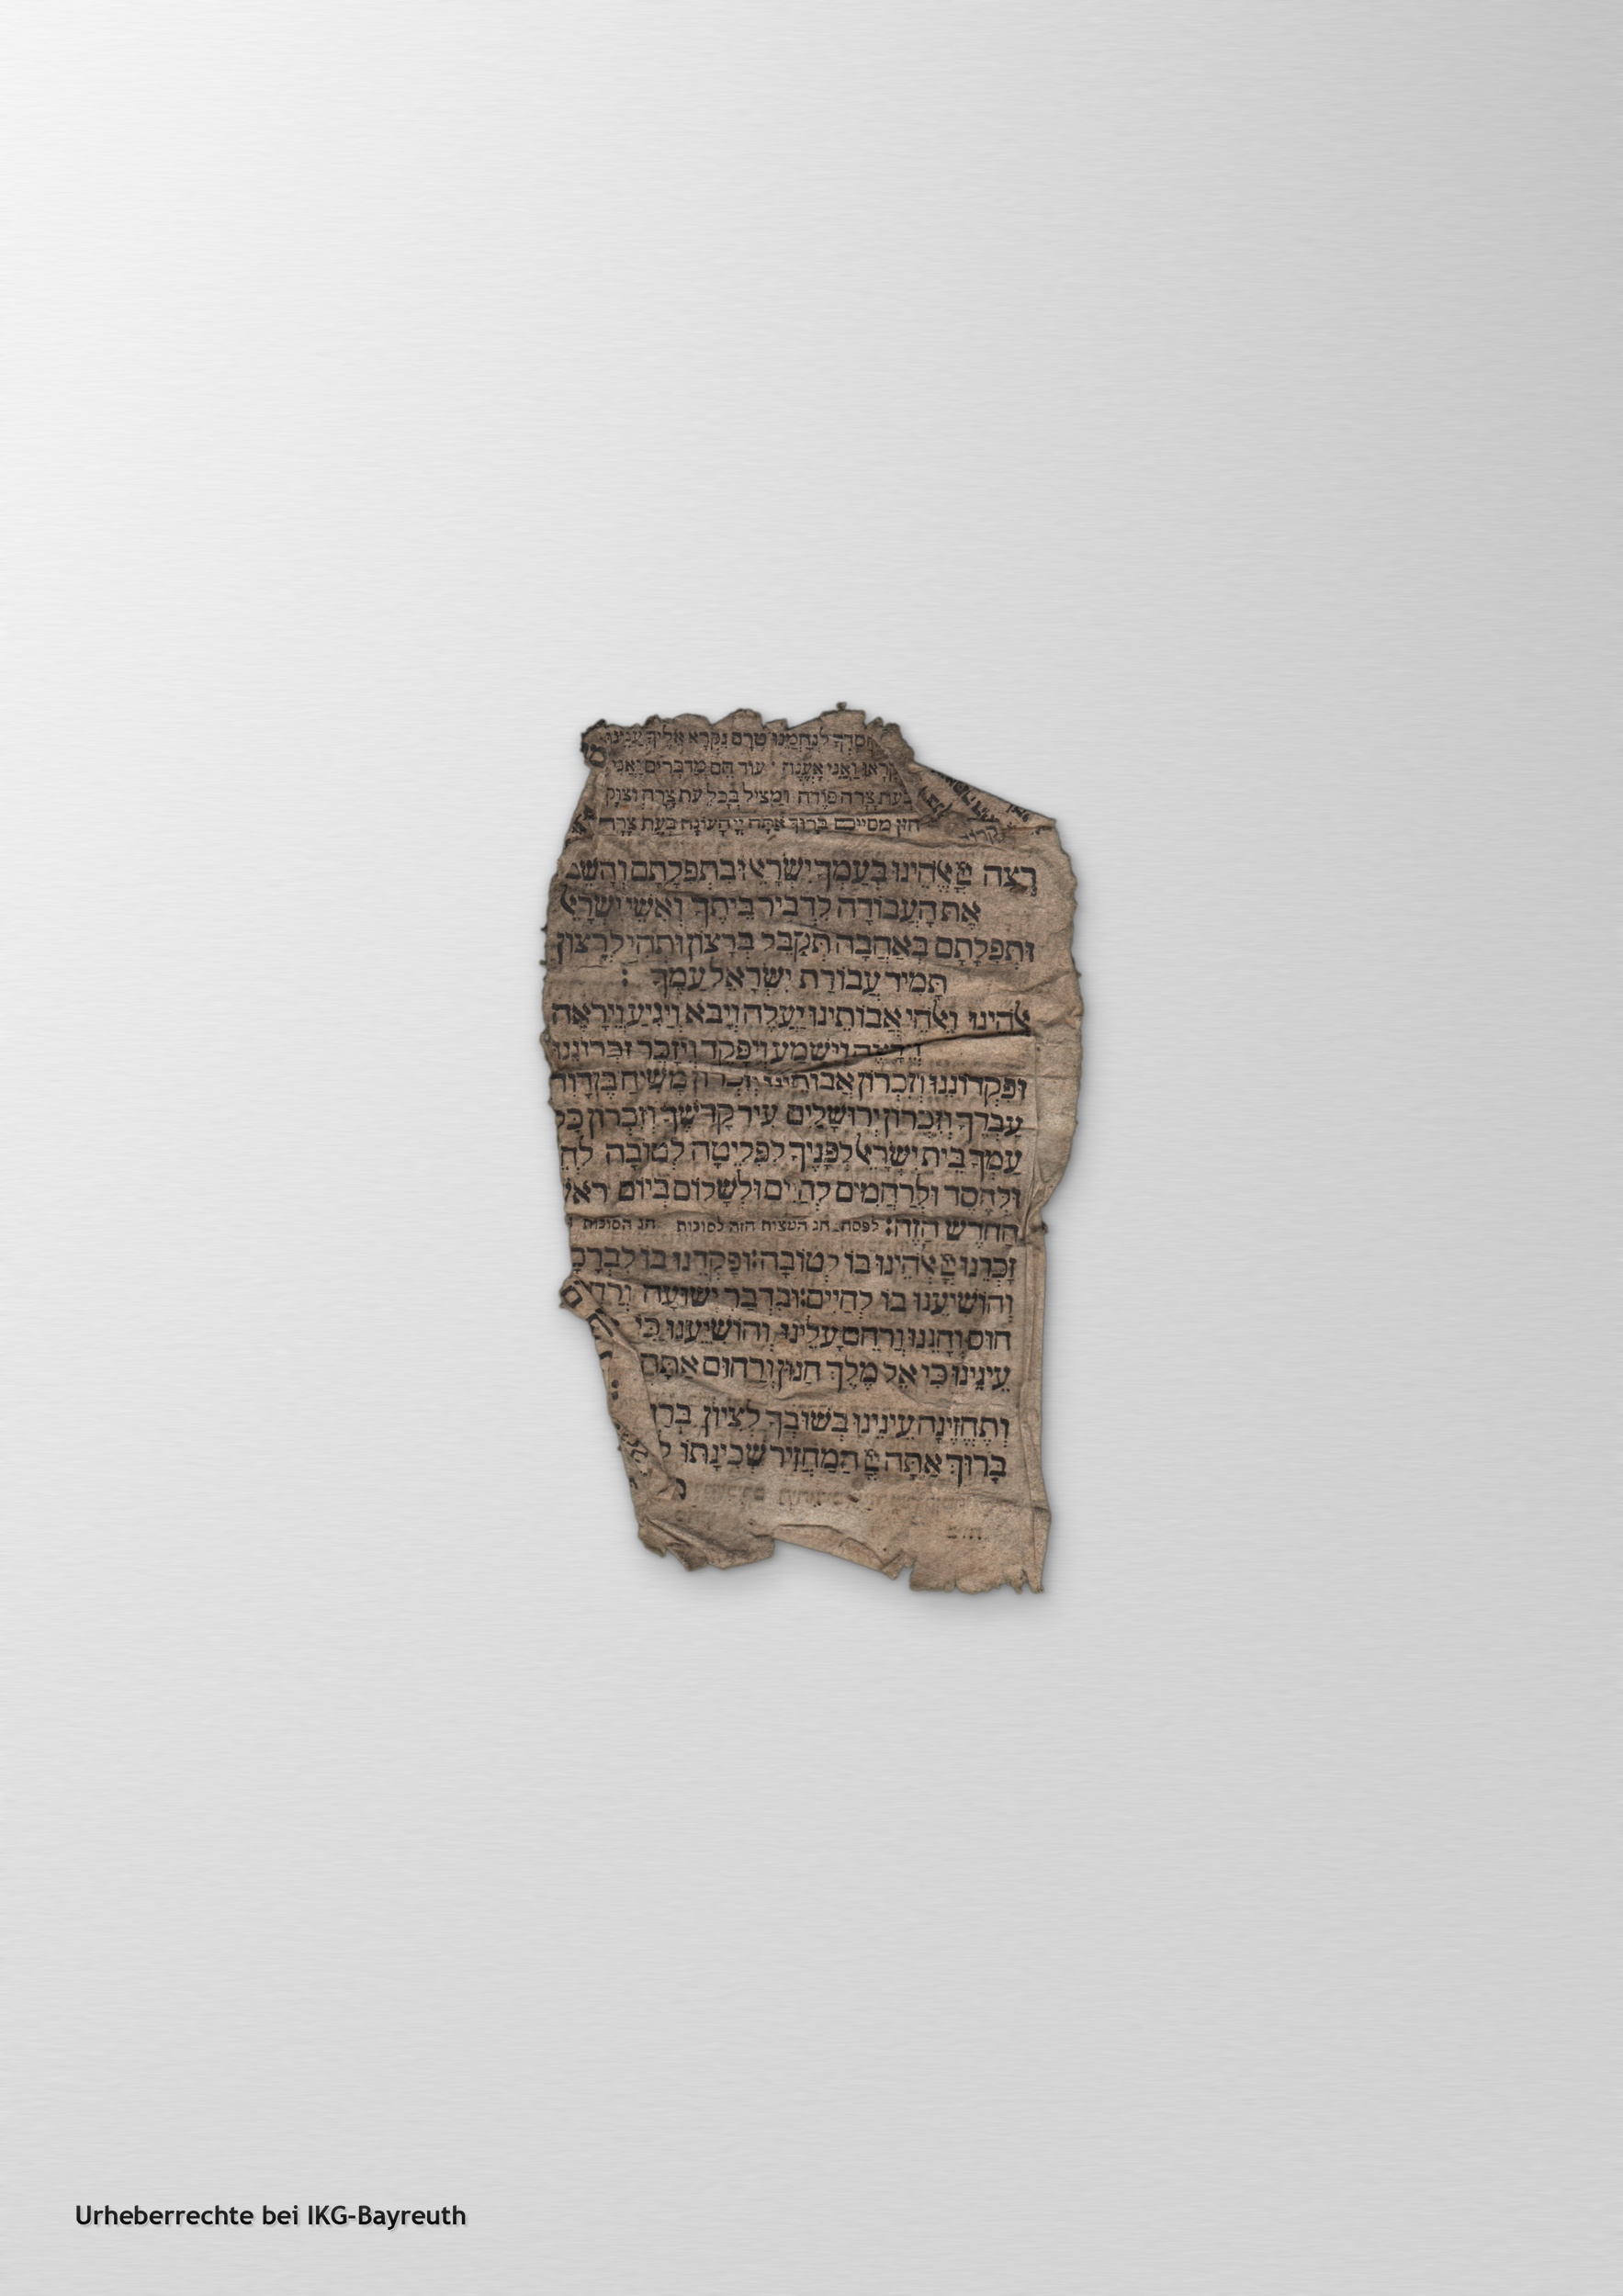 חסדך לנחמנו טרם נקרא אליך עננו
יקראו ואני אענה עוד הם מדברים ואני
בעת צרה פודה ומציל בכל עת צרה וצוק
חזן מסיים ברוך אתה יי העונה בעת צרה
רְצֵה אֱלֹהֵינוּ בְּעַמְּךָ יִשְׂרָאֵל וּבִתְפִלָּתָם וְהָשֵׁב
אֶת הָעֲבוֹדָה לִדְבִיר בֵּיתֶךָ וְאִשֵּׁי יִשְׂרָאֵל
וּתְפִלָּתָם בְּאַהֲבָה תְּקַבֵּל בְּרָצוֹן וּתְהִי לְרָצוֹן
תָּמִיד עֲבוֹדַת יִשְׂרָאֵל עַמֶּךָ :
אֱלֹהֵינוּ וֵאלֹהֵי אֲבוֹתֵינוּ יַעֲלֶה וְיָבֹא וְיַגִּיעַ וְיֵרָאֶה
וְיֵרָצֶה וְיִשָּׁמַע וְיִפָּקֵד וְיִזָּכֵר זִכְרוֹנֵנוּ
וּפִקְדוֹנֵנוּ וְזִכְרוֹן אֲבוֹתֵינוּ וְזִכְרוֹן מָשִׁיחַ בֶּן דָּוִד
עַבְדֶּךָ וְזִכְרוֹן יְרוּשָׁלַיִם עִיר קָדְשֶׁךָ וְזִכְרוֹן כָּל
עַמְּךָ בֵּית יִשְׂרָאֵל לְפָנֶיךָ לִפְלֵיטָה לְטוֹבָה
וּלְחֶסֶד וּלְרַחֲמִים לְחַיִּים וּלְשָׁלוֹם בְּיוֹם רֹאשׁ
הַחֹדֶשׁ הַזֶּה: לפסח חג המצות הזה לסוכות חג הסוכות
זָכְרֵנוּ אֱלֹהֵינוּ בּוֹ לְטוֹבָה: וּפָקְדֵנוּ בוֹ לִבְרָכָה
וְהוֹשִׁיעֵנוּ בוֹ לְחַיִּים: וּבִדְבַר יְשׁוּעָה
חוּס וְחָנֵּנוּ וְרַחֵם עָלֵינוּ וְהוֹשִׁיעֵנוּ כִּי
עֵינֵינוּ כִּי אֵל מֶלֶךְ חַנּוּן וְרַחוּם אַתָּה
וְתֶחֱזֶינָה עֵינֵינוּ בְּשׁוּבְךָ לְצִיּוֹן
בָּרוּךְ אַתָּה הַמַּחֲזִיר שְׁכִינָתוֹ
Urheberrechte bei IKG-Bayreuth